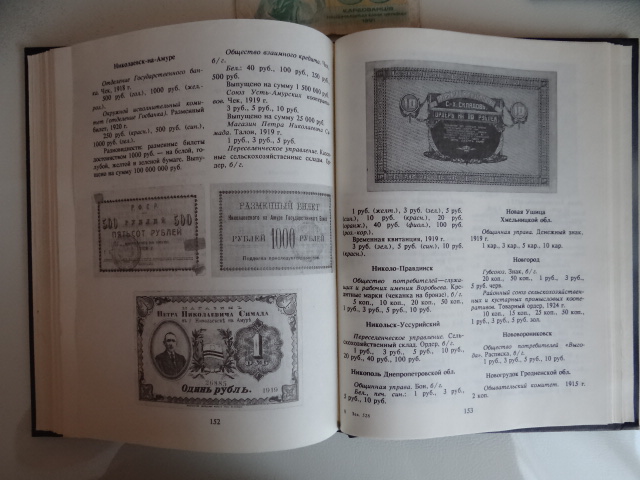 Николаевск-на-Амуре
Отделение Государственного бан-
ка. Чек, 1918 г.
500 руб. (зел.), 1000 руб. (жел.-
роз.).
Окружной исполнительный коми-
тет (отделение Госбанка). Разменный
билет, 1920 г.
250 руб. (красн.), 500 руб. (син.),
1000 руб. (зел.)
Разновидности: разменные билеты
достоинством 1000 руб. — на белой, го-
лубой, желтой и зеленой бумаге. Выпу-
щено на сумму 100 000 000 руб.
Общество взаимного кредита. Чек,
б/г.
Бел.: 40 руб., 100 руб., 250 руб.,
500 руб.
Выпущено на сумму 1 300 000 руб.
Союз Усть-Амурских кооперати-
вов. Чек, 1919 г.
3 руб., 5 руб., 10 руб.
Выпущено на сумму 25 000 руб.
Магазин Петра Николаевича Си-
мада. Талон, 1919 г.
1 руб., 3 руб., 5 руб.
Переселенческое управление.
сельскохозяйственные склады.
500 РУБЛЕЙ 500
ПЯТЬСОТ РУБЛЕЙ
РАЗМЕННЫЙ БИЛЕТ
Николаевского на Амуре Государственного Банка
РУБЛЕЙ 1000 РУБЛЕЙ
ПЕТРА НИКОЛАЕВИЧА СИМАДА
въ г. Николаевскѣ, на Амурѣ
1
ОДИНЪ РУБЛЬ
1919
152
10
10
1 руб. (желт.), 3 руб. (зел.), 5 руб.
(син.), 10 руб. (красн.), 20 руб.
(оранж.), 40 руб. (фиол.), 100 руб.
(роз.-кор.).
Временная квитанция, 1919 г.
3 руб. (зел.), 5 руб. (син.), 10 руб.
(красн.).
Николо-Правдинск
Общество потребителей—служа-
щих и рабочих имения Воробьева. Кре-
дитные марки (чеканка на бронзе), б/г.
5 коп., 10 коп., 20 коп., 50 коп.,
1 руб., 3 руб., 5 руб., 10 руб.
Никольск-Уссурийский
Переселенческое управление. Сель-
скохозяйственный склад. Ордер, б/г.
1 руб., 3 руб., 5 руб., 10 руб.,
20 руб., 40 руб., 100 руб.
Никополь Днепропетровской обл.
Общинная управа. Бон, б/г.
Бел., печ. син.: 1 руб., 3 руб.,
5 руб., 10 руб.
Новая Ушица
Хмельницкой обл.
Общинная управа. Денежный знак,
1919 г.
1 кар., 3 кар., 5 кар., 10 кар.
Новгород
Губсоюз. Знак, б/г.
20 коп., 50 коп., 1 руб., 3 руб.,
5 руб. черв.
Районный союз сельскохозяйствен-
ных и кустарных промысловых коопе-
ративов. Товарный ордер, 1924 г.
10 коп., 15 коп., 25 коп., 50 коп.,
1 руб., 3 руб., 5 руб. зол.
Нововоронцовск
Общество потребителей «Выго-
да». Расписка, б/г.
1 руб., 3 руб., 5 руб.
Новогрудок Гродненской обл.
Обывательский комитет. 1915 г.
2 коп.
153